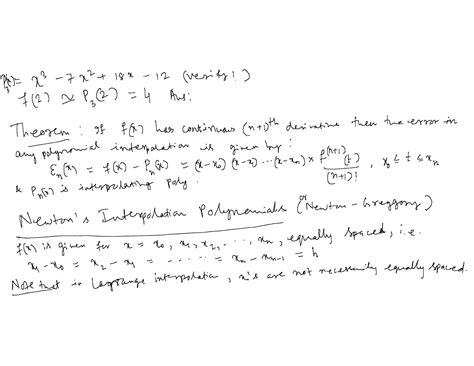 P₃(x) = x³ - 7x² + 18x - 12 (verify!)
f(2) ≃ P₃(2) = 4 Ans:
Theorem: If f(x) has continuous (n+1)th derivative then the error in
any polynomial interpolation is given by:
Ɛₙ(x) = f(x) - Pₙ(x) = (x-x₀)(x-x₁)...(x-xₙ) × f⁽ⁿ⁺¹⁾(t)/(n+1)!, x₀ ≤ t ≤ xₙ
& Pₙ(x) is interpolating poly.
Newton's Interpolation Polynomials (or Newton-Greggory)
f(x) is given for x = x₀, x₁, x₂, ..., xₙ, equally spaced, i.e.
x₁-x₀ = x₂-x₁ = ...... = xₙ-xₙ₋₁ = h
Note that in Lagrange interpolation, x's are not necessarily equally spaced.